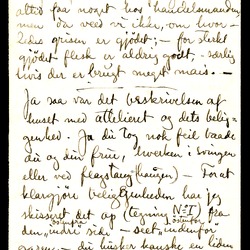 altid paa noget hos handelsmanden,
men da veed vi ikke, om hvor-
ledes grisen er gjödet; — for sterkt
gjödet flesk er aldrig godt, særlig
hvis der er brugt meget mais. —
Ja saa var det beskrivelsen af
huset med atelieret og dets belig-
genhed. Ja du tog nok feil baade
du og din frue, hverken i svingen
eller ved flagstang-haugen) — For at
klargjöre beliggenheden har jeg
skisseret det op (tegning N=I) fra
den side — seet indenfor
du husker kanske en liden